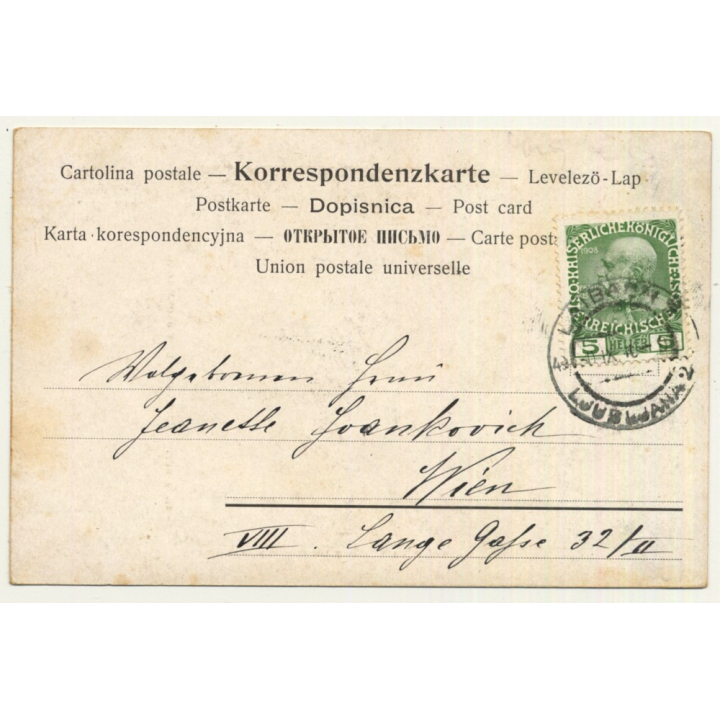 Cartolina postale — Korrespondenzkarte — Levelező-Lap
Postkarte — Dopisnica — Post card
Karta korespondencyjna — ОТКРЫТОЕ ПИСЬМО — Carte post
Union postale universelle
1908
KAISERLICHE KÖNIGLICHE
ÖSTERREICHISCHE
5 HELLER 5
LAIBACH
LJUBLJANA 2
Wolgeborenen Frau
Jeanette Ivankovich
Wien
VIII. Lange Gasse 32/II